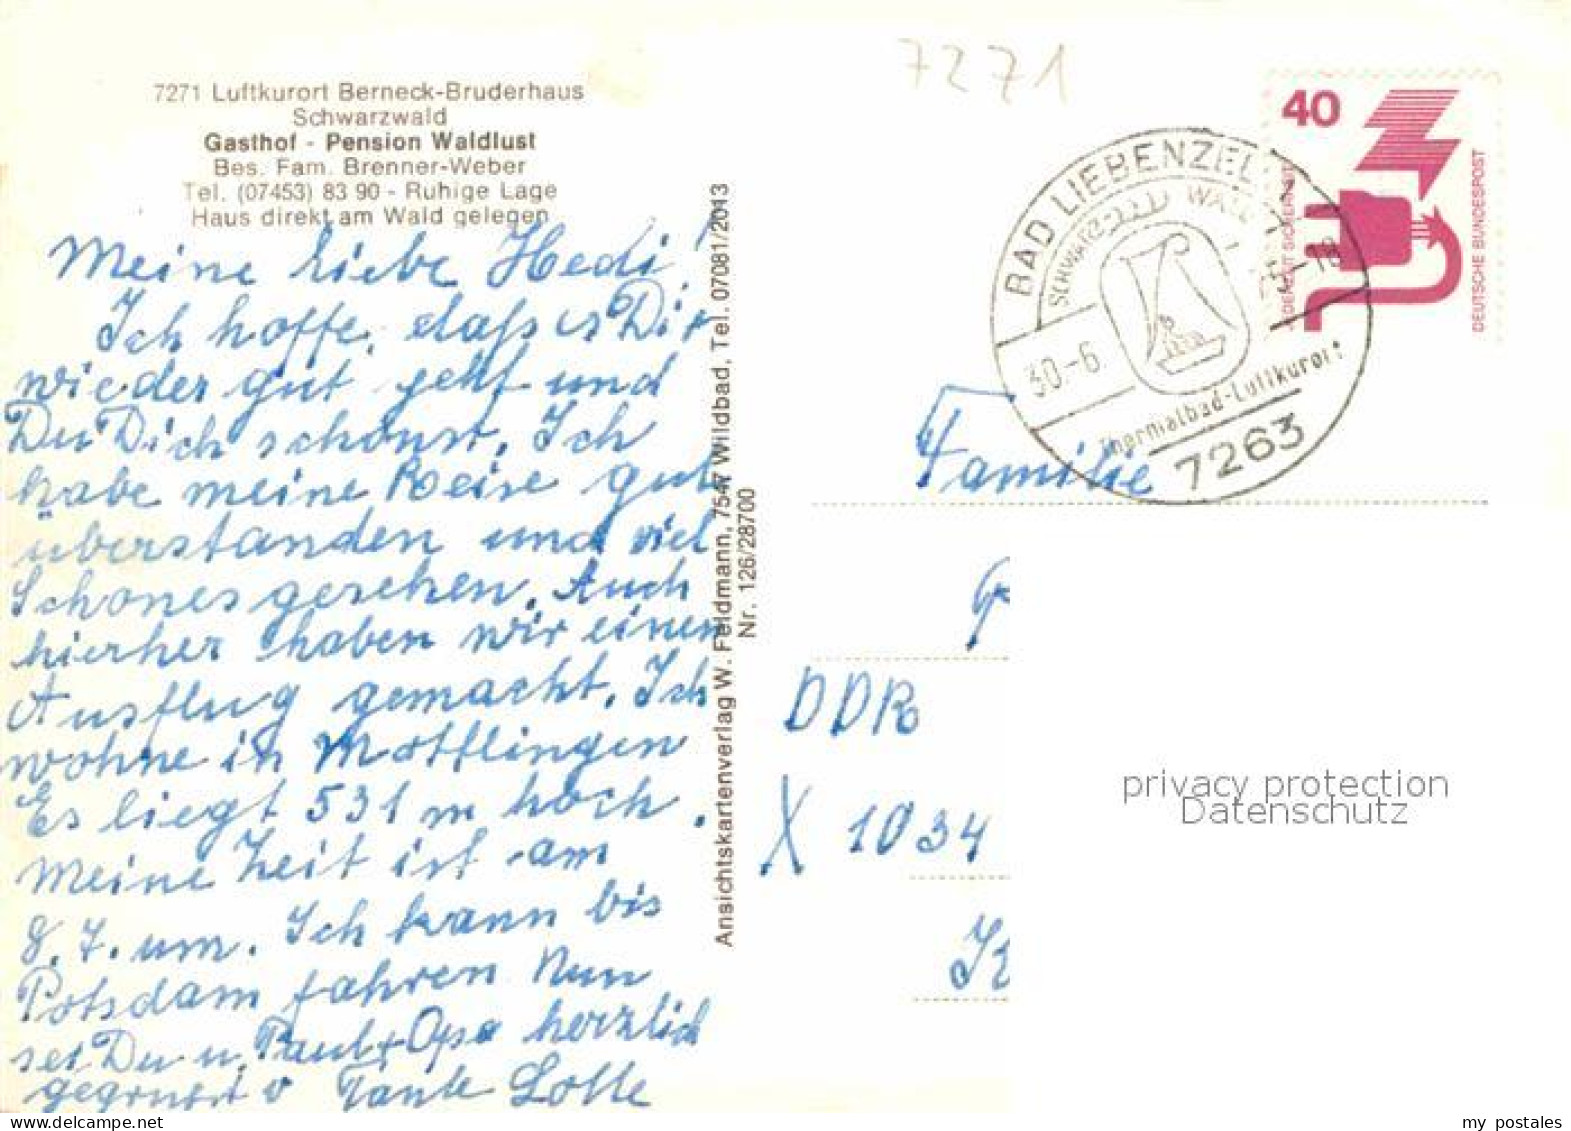 7271
7271 Luftkurort Berneck-Bruderhaus
Schwarzwald
Gasthof - Pension Waldlust
Bes. Fam. Brenner-Weber
Tel. (07453) 83 90 - Ruhige Lage
Haus direkt am Wald gelegen
Meine liebe Hedi!
Ich hoffe, daß es Dir
wieder gut geht und
Du Dich schonst. Ich
habe meine Reise gut
überstanden und viel
Schönes gesehen. Auch
hierher haben wir einen
Ausflug gemacht. Ich
wohne in Möttlingen
Es liegt 531 m hoch.
Meine Zeit ist am
8. 7. um. Ich kann bis
Potsdam fahren Nun
sei Du u. Paul + Opa herzlich
gegrüßt v Tante Lotte
Ansichtskartenverlag W. Feldmann, 7547 Wildbad, Tel. 07081/2013
Nr. 126/28700
40
JEDERZEIT SICHERHEIT
DEUTSCHE BUNDESPOST
BAD LIEBENZELL
SCHWARZWALD
30.-6.
-18
Thermalbad-Luftkurort
7263
Familie
DDR
X 1034
privacy protection
Datenschutz
my postales